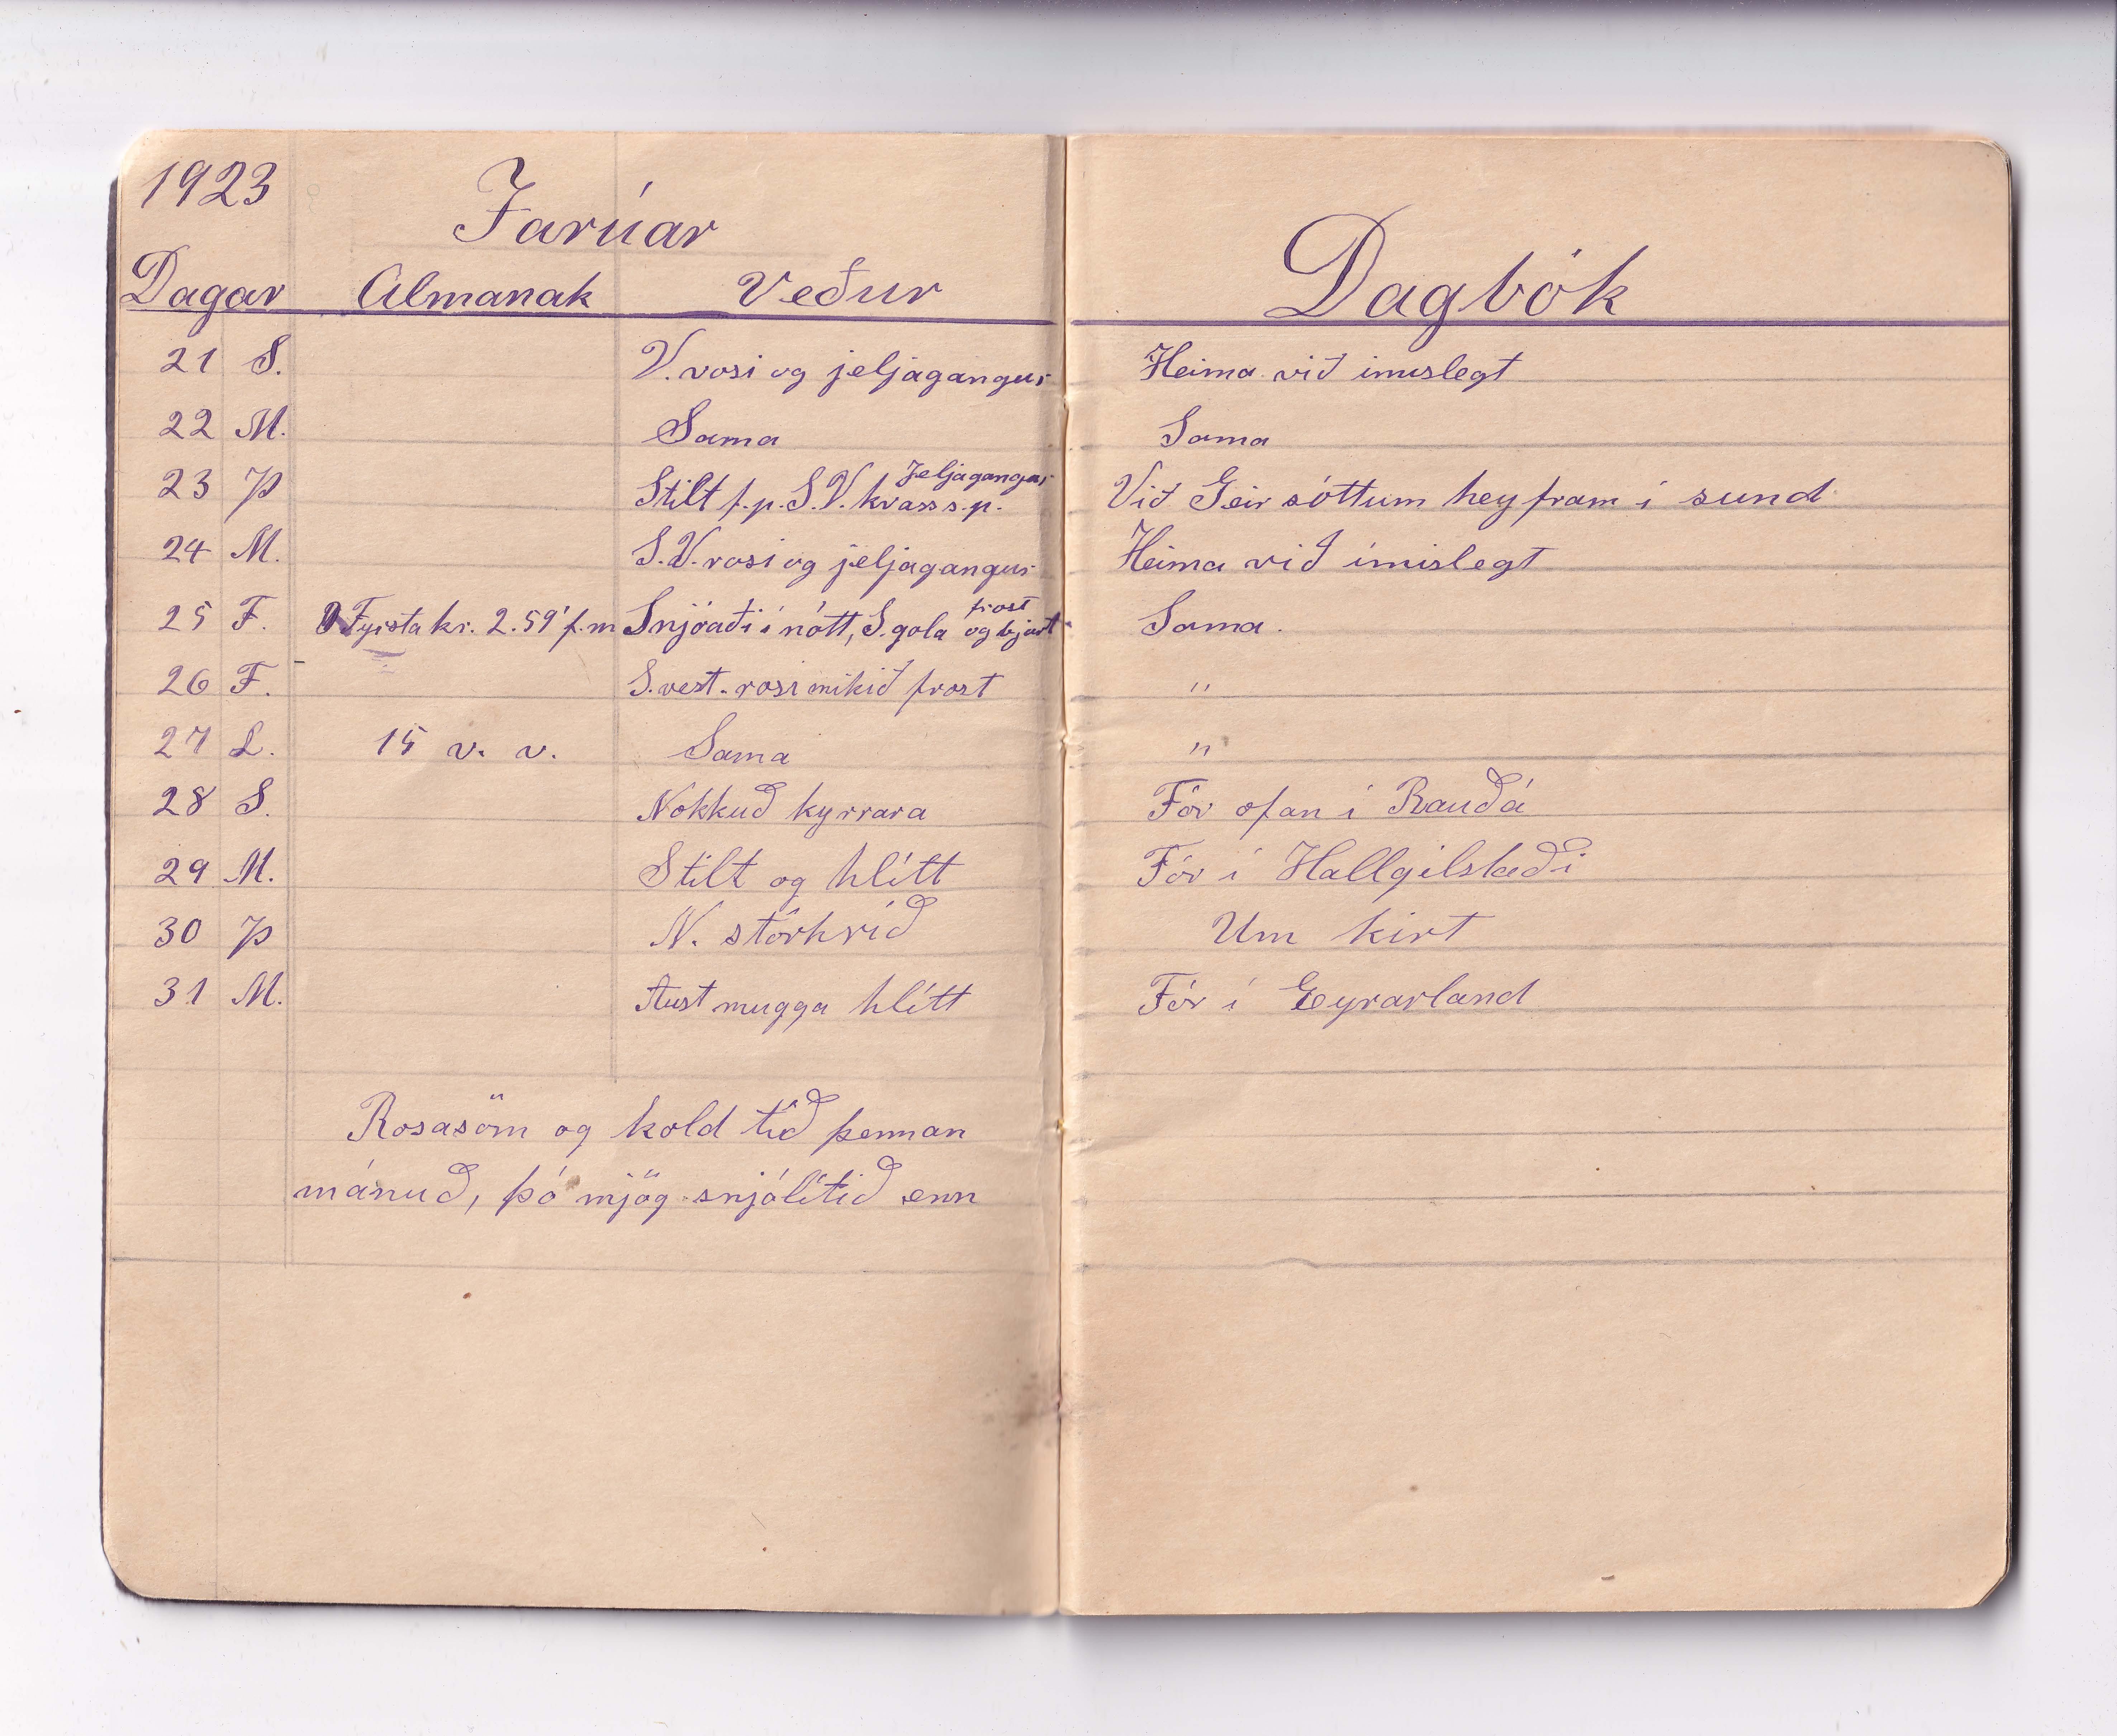 1923
Jarúar
Dagar Almanak Veður Dagbók
21 S. V. rosi og jeljagangur Heima við imislegt
22 M. Sama Sama
23 Þ Stilt f.p. S.V. kvass s.p. Jeljagangur Við Geir sóttum hey fram í sund
24 M. S.V. rosi og jeljagangur Heima við ímislegt
25 F. Fyrsta kr. 2.59' f.m Snjóaði í nótt, S. gola frost og bjart Sama.
26 F. S. vest. rosi mikið frost "
27 L. 15 v. v. Sama "
28 S. Nokkuð kyrrara Fór ofan í Rauðá
29 M. Stilt og hlítt Fór í Hallgilstaði
30 Þ N. stórhríð Um kirt
31 M. Aust mugga hlítt Fór í Eyrarland
Rosasöm og kold tíð þennan
mánuð, þó mjög snjólítið enn